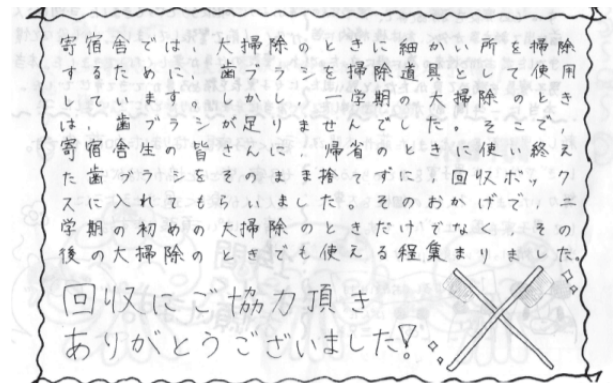 寄宿舎では、大掃除のときに細かい所を掃除
するために、歯ブラシを掃除道具として使用
しています。しかし、一学期の大掃除のとき
は、歯ブラシが足りませんでした。そこで、
寄宿舎生の皆さんに、帰省のときに使い終え
た歯ブラシをそのまま捨てずに、回収ボック
スに入れてもらいました。そのおかげで、二
学期の初めの大掃除のときだけでなく、その
後の大掃除のときでも使える程集まりました。
回収にご協力頂き
ありがとうございました!